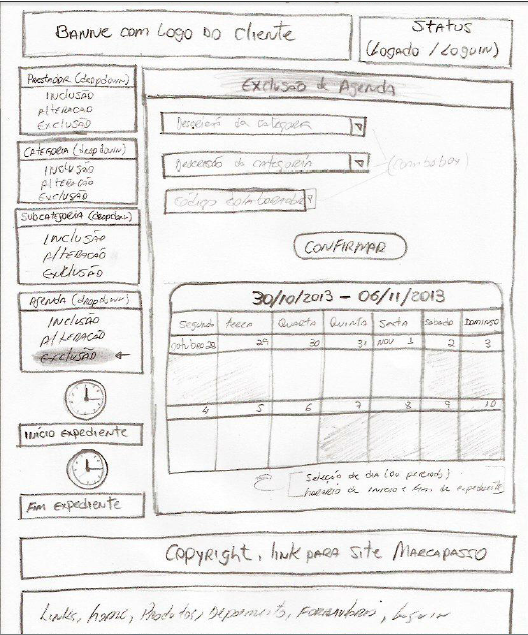 Banne com Logo do Cliente
Status
(Logado / Loguin)
Prestador (dropdown)
Inclusão
Alteração
Exclusão
Categoria (dropdown)
Inclusão
Alteração
Exclusão
Subcategoria (dropdown)
Inclusão
Alteração
Exclusão
Agenda (dropdown)
Inclusão
Alteração
Exclusão
Início expediente
Fim expediente
Exclusão de Agenda
Descrição da categoria
Descrição da categoria
(combobox)
Código
Confirmar
30/10/2013 - 06/11/2013
Segunda terca Quarta Quinta Sexta Sabado Domingo
outubro 28 29 30 31 Nov 1 2 3
4 5 6 7 8 9 10
Seleção de dia (ou periodo)
horário de inicio e fim de expediente
Copyright, link para site Marcapasso
Links, home, Produtos, Depoimento, Fornecedores, Loguin